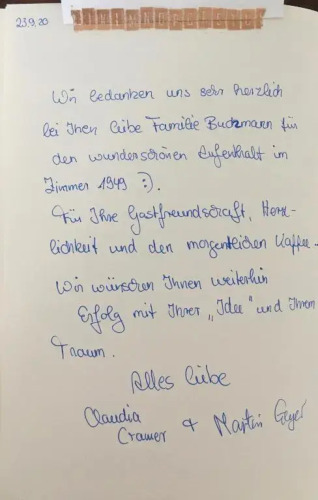 23.9.20
Wir bedanken uns sehr herzlich
bei Ihnen liebe Familie Buchmann für
den wunderschönen Aufenthalt im
Zimmer 1949 :).
Für Ihre Gastfreundschaft, Herz-
lichkeit und den morgentlichen Kaffee.
Wir wünschen Ihnen weiterhin
Erfolg mit Ihrer „Idee" und Ihrem
Traum.
Alles liebe
Claudia
Cramer & Martin Geyer